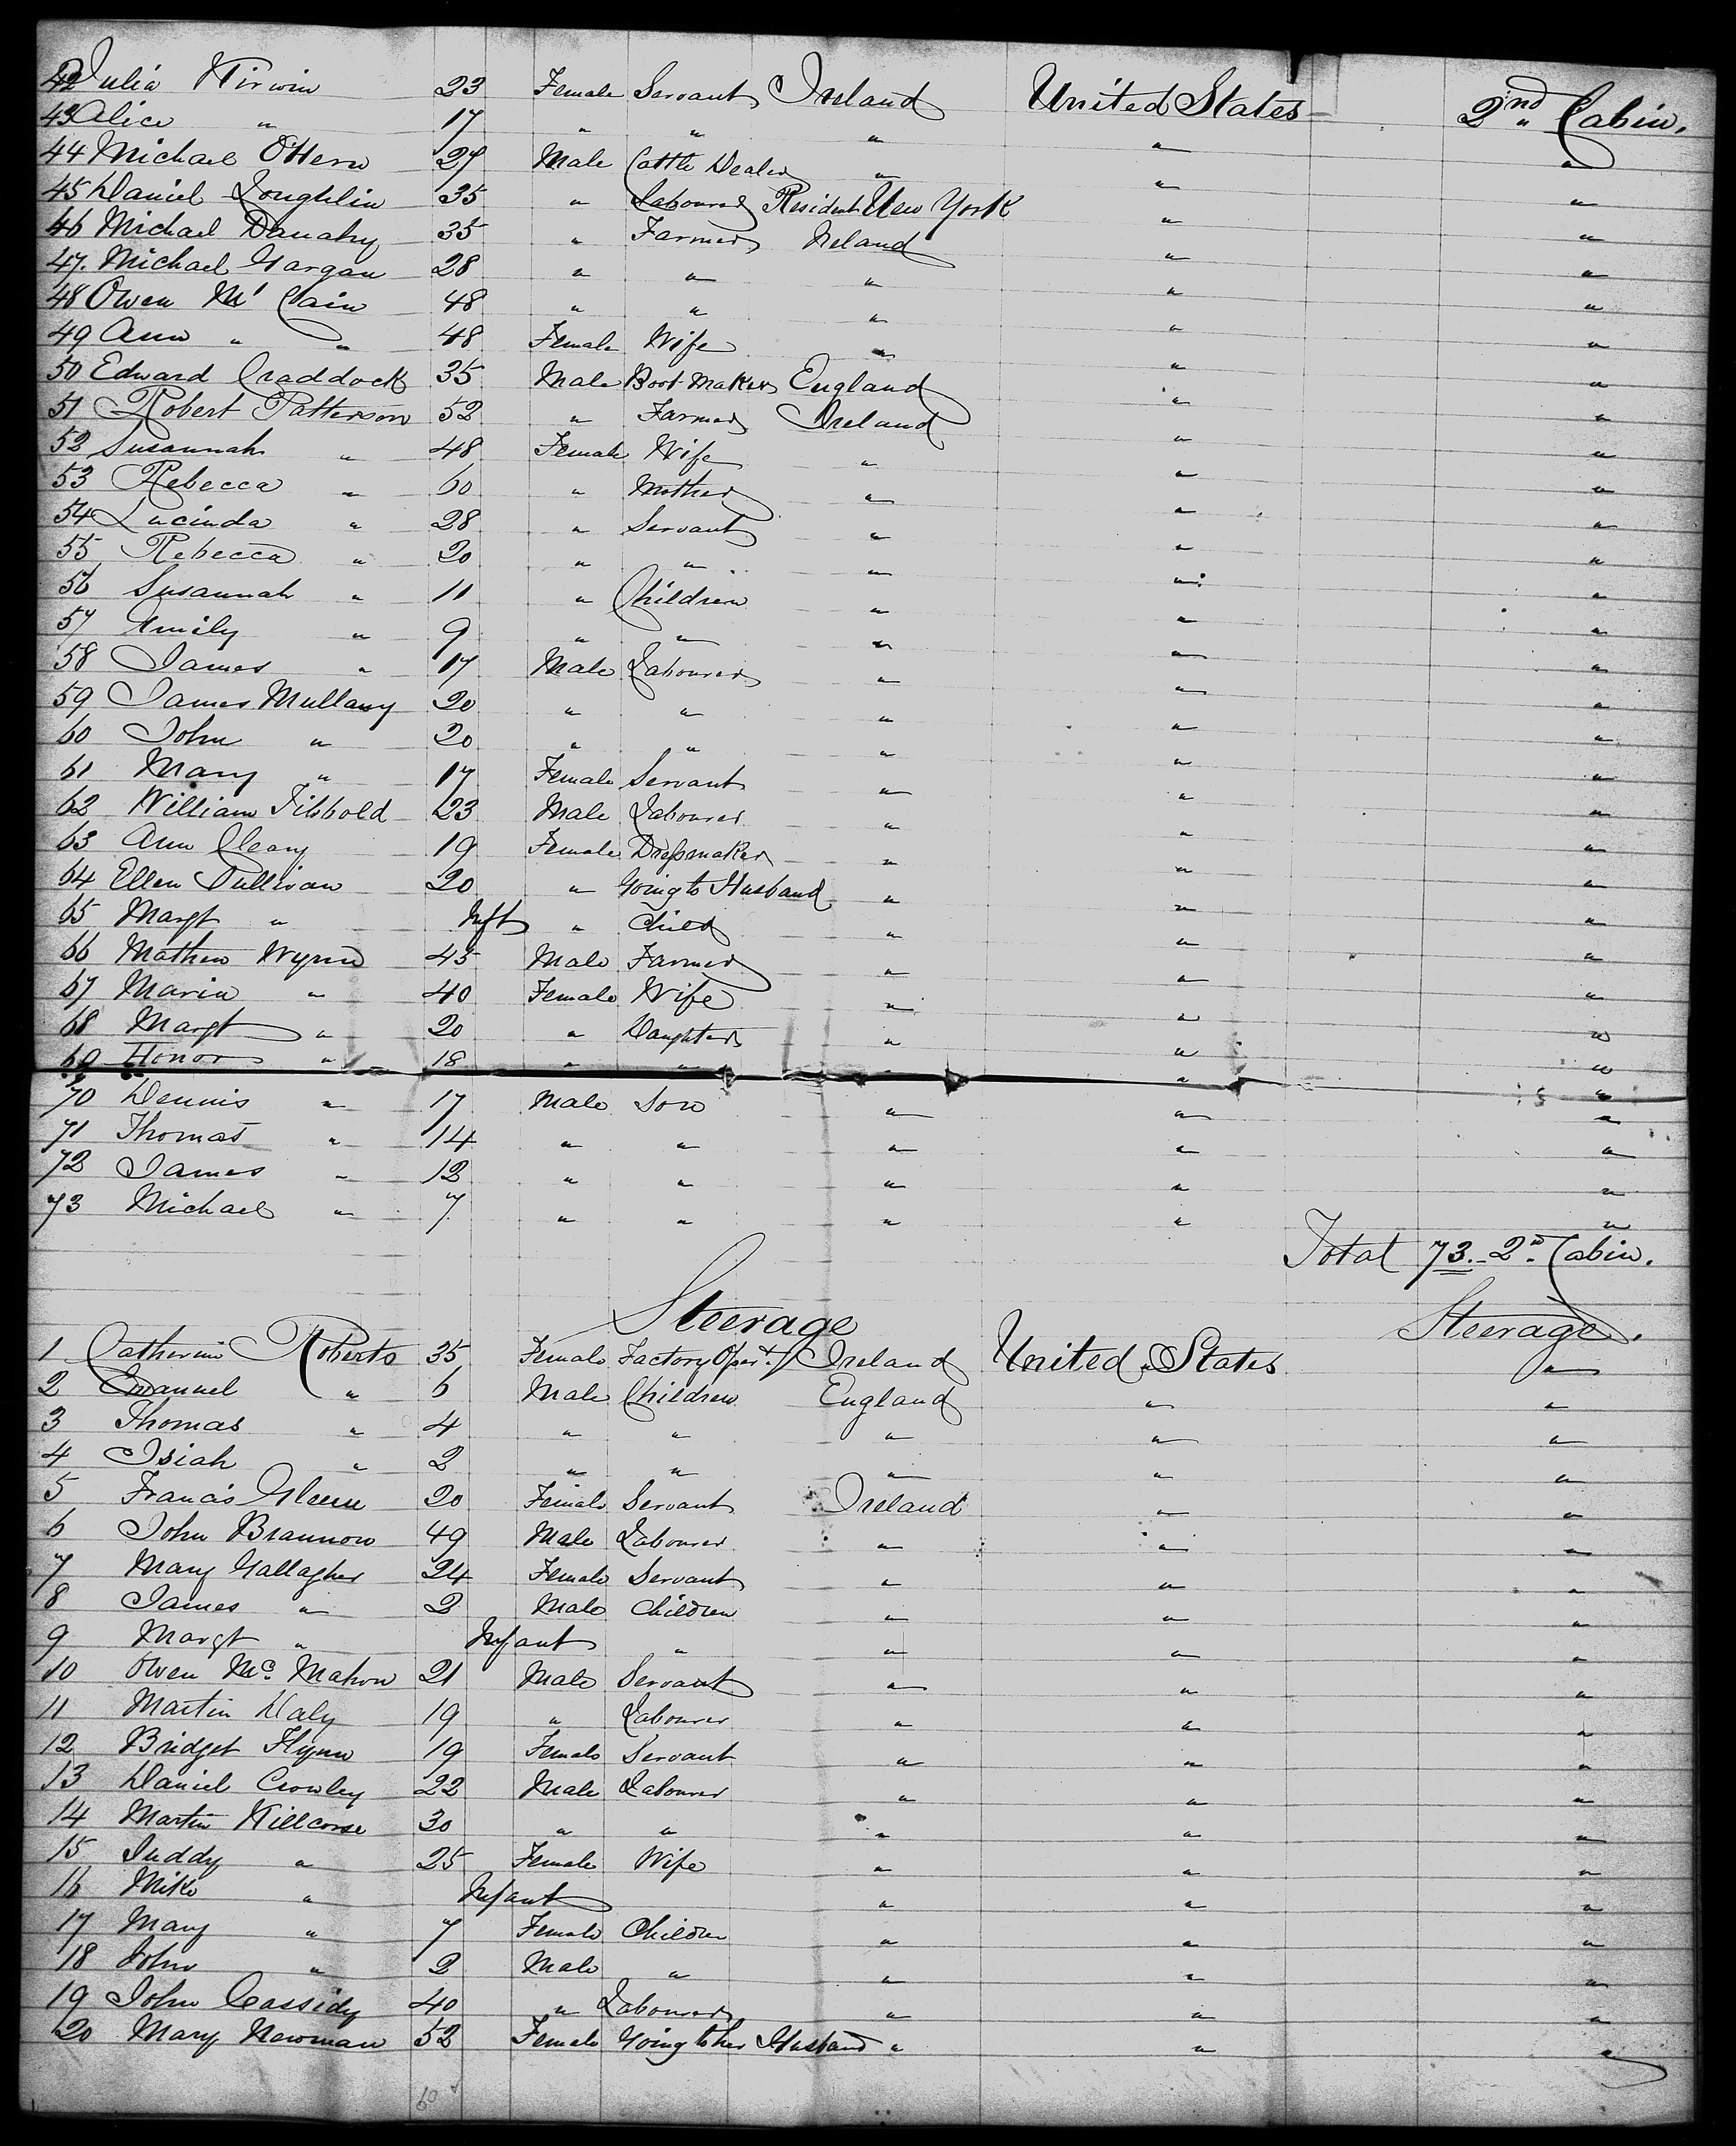 42 Julia Kirwin 23 Female Servant Ireland United States 2nd Cabin.
43 Alice " 17 " " " " "
44 Michael O'Hern 27 Male Cattle Dealer " " "
45 Daniel Loughlin 35 " Labourer Resident New York " "
46 Michael Danahy 35 " Farmer Ireland " "
47. Michael Gargan 28 " " " " "
48 Owen Mc Cain 48 " " " " "
49 Ann " " 48 Female Wife " " "
50 Edward Craddock 35 Male Boot Maker England " "
51 Robert Patterson 52 " Farmer Ireland " "
52 Susannah " 48 Female Wife " " "
53 Rebecca " 60 " Mother " " "
54 Lucinda " 28 " Servant " " "
55 Rebecca " 20 " " " " "
56 Susannah " 11 " Children " " "
57 Emily " 9 " " " " "
58 James " 17 Male Labourer " " "
59 James Mullany 20 " " " " "
60 John " 20 " " " " "
61 Mary " 17 Female Servant " " "
62 William Tibbold 23 Male Labourer " " "
63 Ann Cleary 19 Female Dressmaker " " "
64 Ellen Sullivan 20 " Going to Husband " " "
65 Margt " Inft " Child " " "
66 Mathew Wynne 45 Male Farmer " " "
67 Maria " 40 Female Wife " " "
68 Margt " 20 " Daughter " " "
69 Honor " 18 " " " " "
70 Dennis " 17 Male Son " " "
71 Thomas " 14 " " " " "
72 James " 12 " " " " "
73 Michael " 7 " " " " "
Total 73. 2nd Cabin.
Steerage Steerage.
1 Catherine Roberts 35 Female Factory Opert. Ireland United States "
2 Emanuel " 6 Male Children England " "
3 Thomas " 4 " " " " "
4 Isiah " 2 " " " " "
5 Francis Gleene 20 Female Servant Ireland " "
6 John Brannon 49 Male Labourer " " "
7 Mary Gallagher 24 Female Servant " " "
8 James " 2 Male Children " " "
9 Margt " Infant " " " "
10 Owen Mc. Mahon 21 Male Servant " " "
11 Martin Daly 19 " Labourer " " "
12 Bridget Flynn 19 Female Servant " " "
13 Daniel Crowley 22 Male Labourer " " "
14 Martin Killcorse 30 " " " " "
15 Juddy " 25 Female Wife " " "
16 Mike " Infant " " "
17 Mary " 7 Female Children " " "
18 John " 2 Male " " " "
19 John Cassidy 40 " Labourer " " "
20 Mary Newman 52 Female Going to her Husband " " "
60